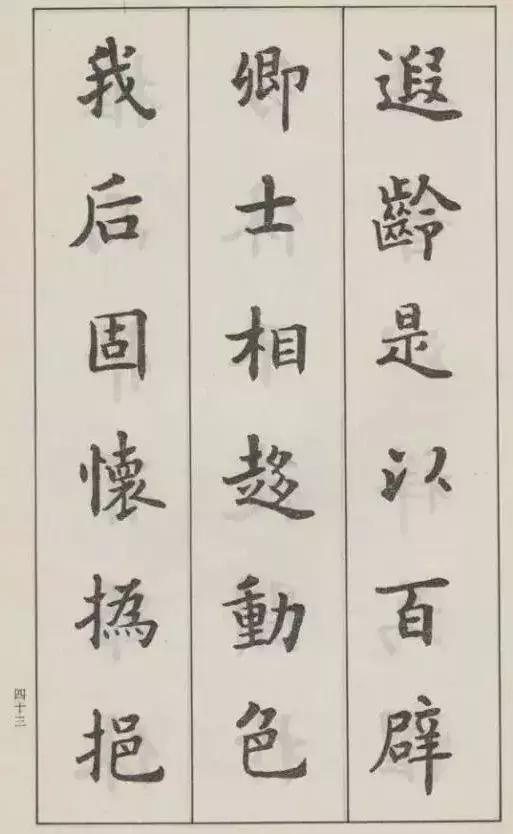 遐齡是以百辟
卿士相趍動色
我后固懷撝挹
四十三